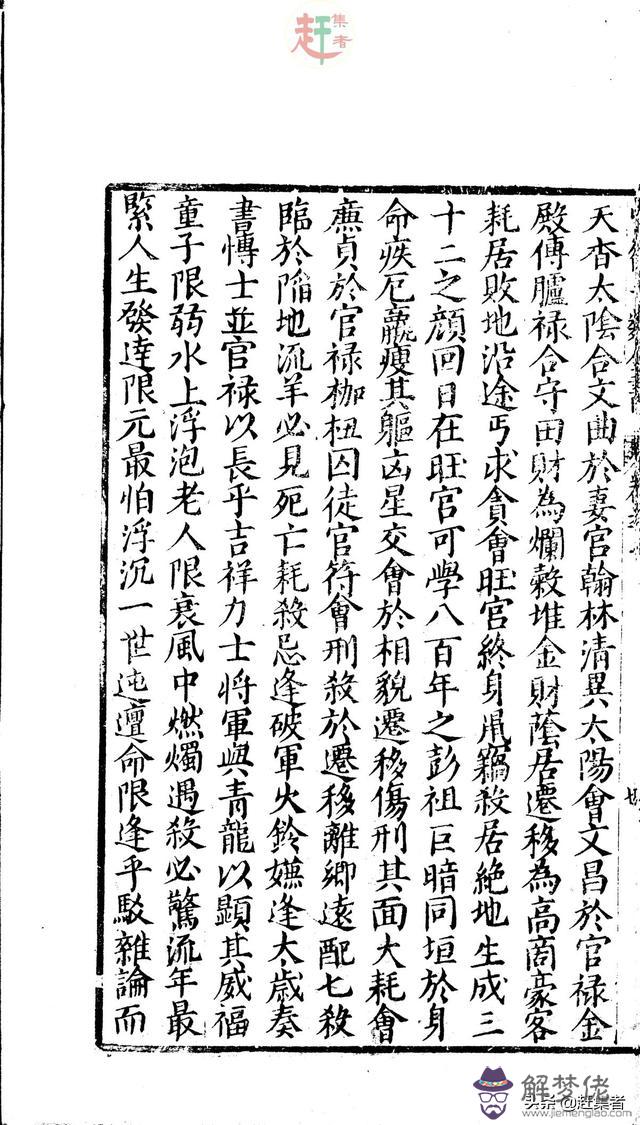 赶集者
天杳太陰合文曲於妻宮翰林清異太陽會文昌於官禄金
殿傳臚禄合守田財為爛穀堆金財蔭居遷移為高商豪客
耗居敗地沿途丐求貪會旺宮終身鼠竊殺居絶地生成三
十二之顔回日在旺宮可學八百年之彭祖巨暗同垣於身
命疾厄羸瘦其軀凶星交會於相貌遷移傷刑其面大耗會
廉貞於官禄枷杻囚徒官符會刑殺於遷移離鄉遠配七殺
臨於陷地流羊必見死亡耗殺忌逢破軍火鈴嫌逢太歲奏
書博士並官禄以長乎吉祥力士將軍與青龍以顯其威福
童子限弱水上浮泡老人限衰風中燃燭遇殺必驚流年最
緊人生發達限元最怕浮沉一世迍邅命限逢乎駁雜論而
解梦佬
www.jiemenglao.com
头条@赶集者